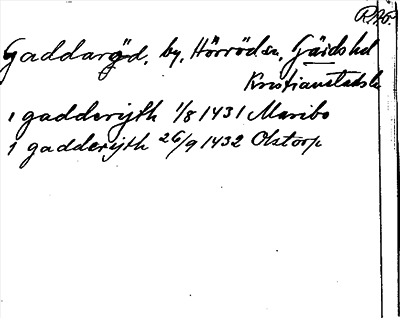 R.A.P.
Gaddaröd, by, Hörröds sn, Gärds hd
Kristianstads l.
1 gadderyth 1/8 1431 Maribo
1 gadderyth 26/9 1432 Olstorp